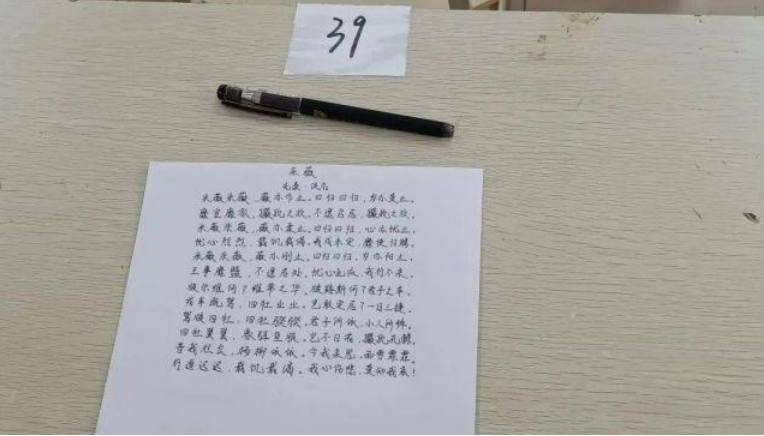 39
采薇
先秦·佚名
采薇采薇,薇亦作止。曰归曰归,岁亦莫止。
靡室靡家,玁狁之故。不遑启居,玁狁之故。
采薇采薇,薇亦柔止。曰归曰归,心亦忧止。
忧心烈烈,载饥载渴,我戍未定,靡使归聘。
采薇采薇,薇亦刚止。曰归曰归,岁亦阳止。
王事靡盬,不遑启处,忧心孔疚,我行不来。
彼尔维何?维常之华。彼路斯何?君子之车。
戎车既驾,四牡业业。岂敢定居?一月三捷。
驾彼四牡,四牡骙骙。君子所依,小人所腓。
四牡翼翼,象弭鱼服。岂不日戒,玁狁孔棘。
昔我往矣,杨柳依依。今我来思,雨雪霏霏。
行道迟迟,载饥载渴。我心伤悲,莫知我哀!